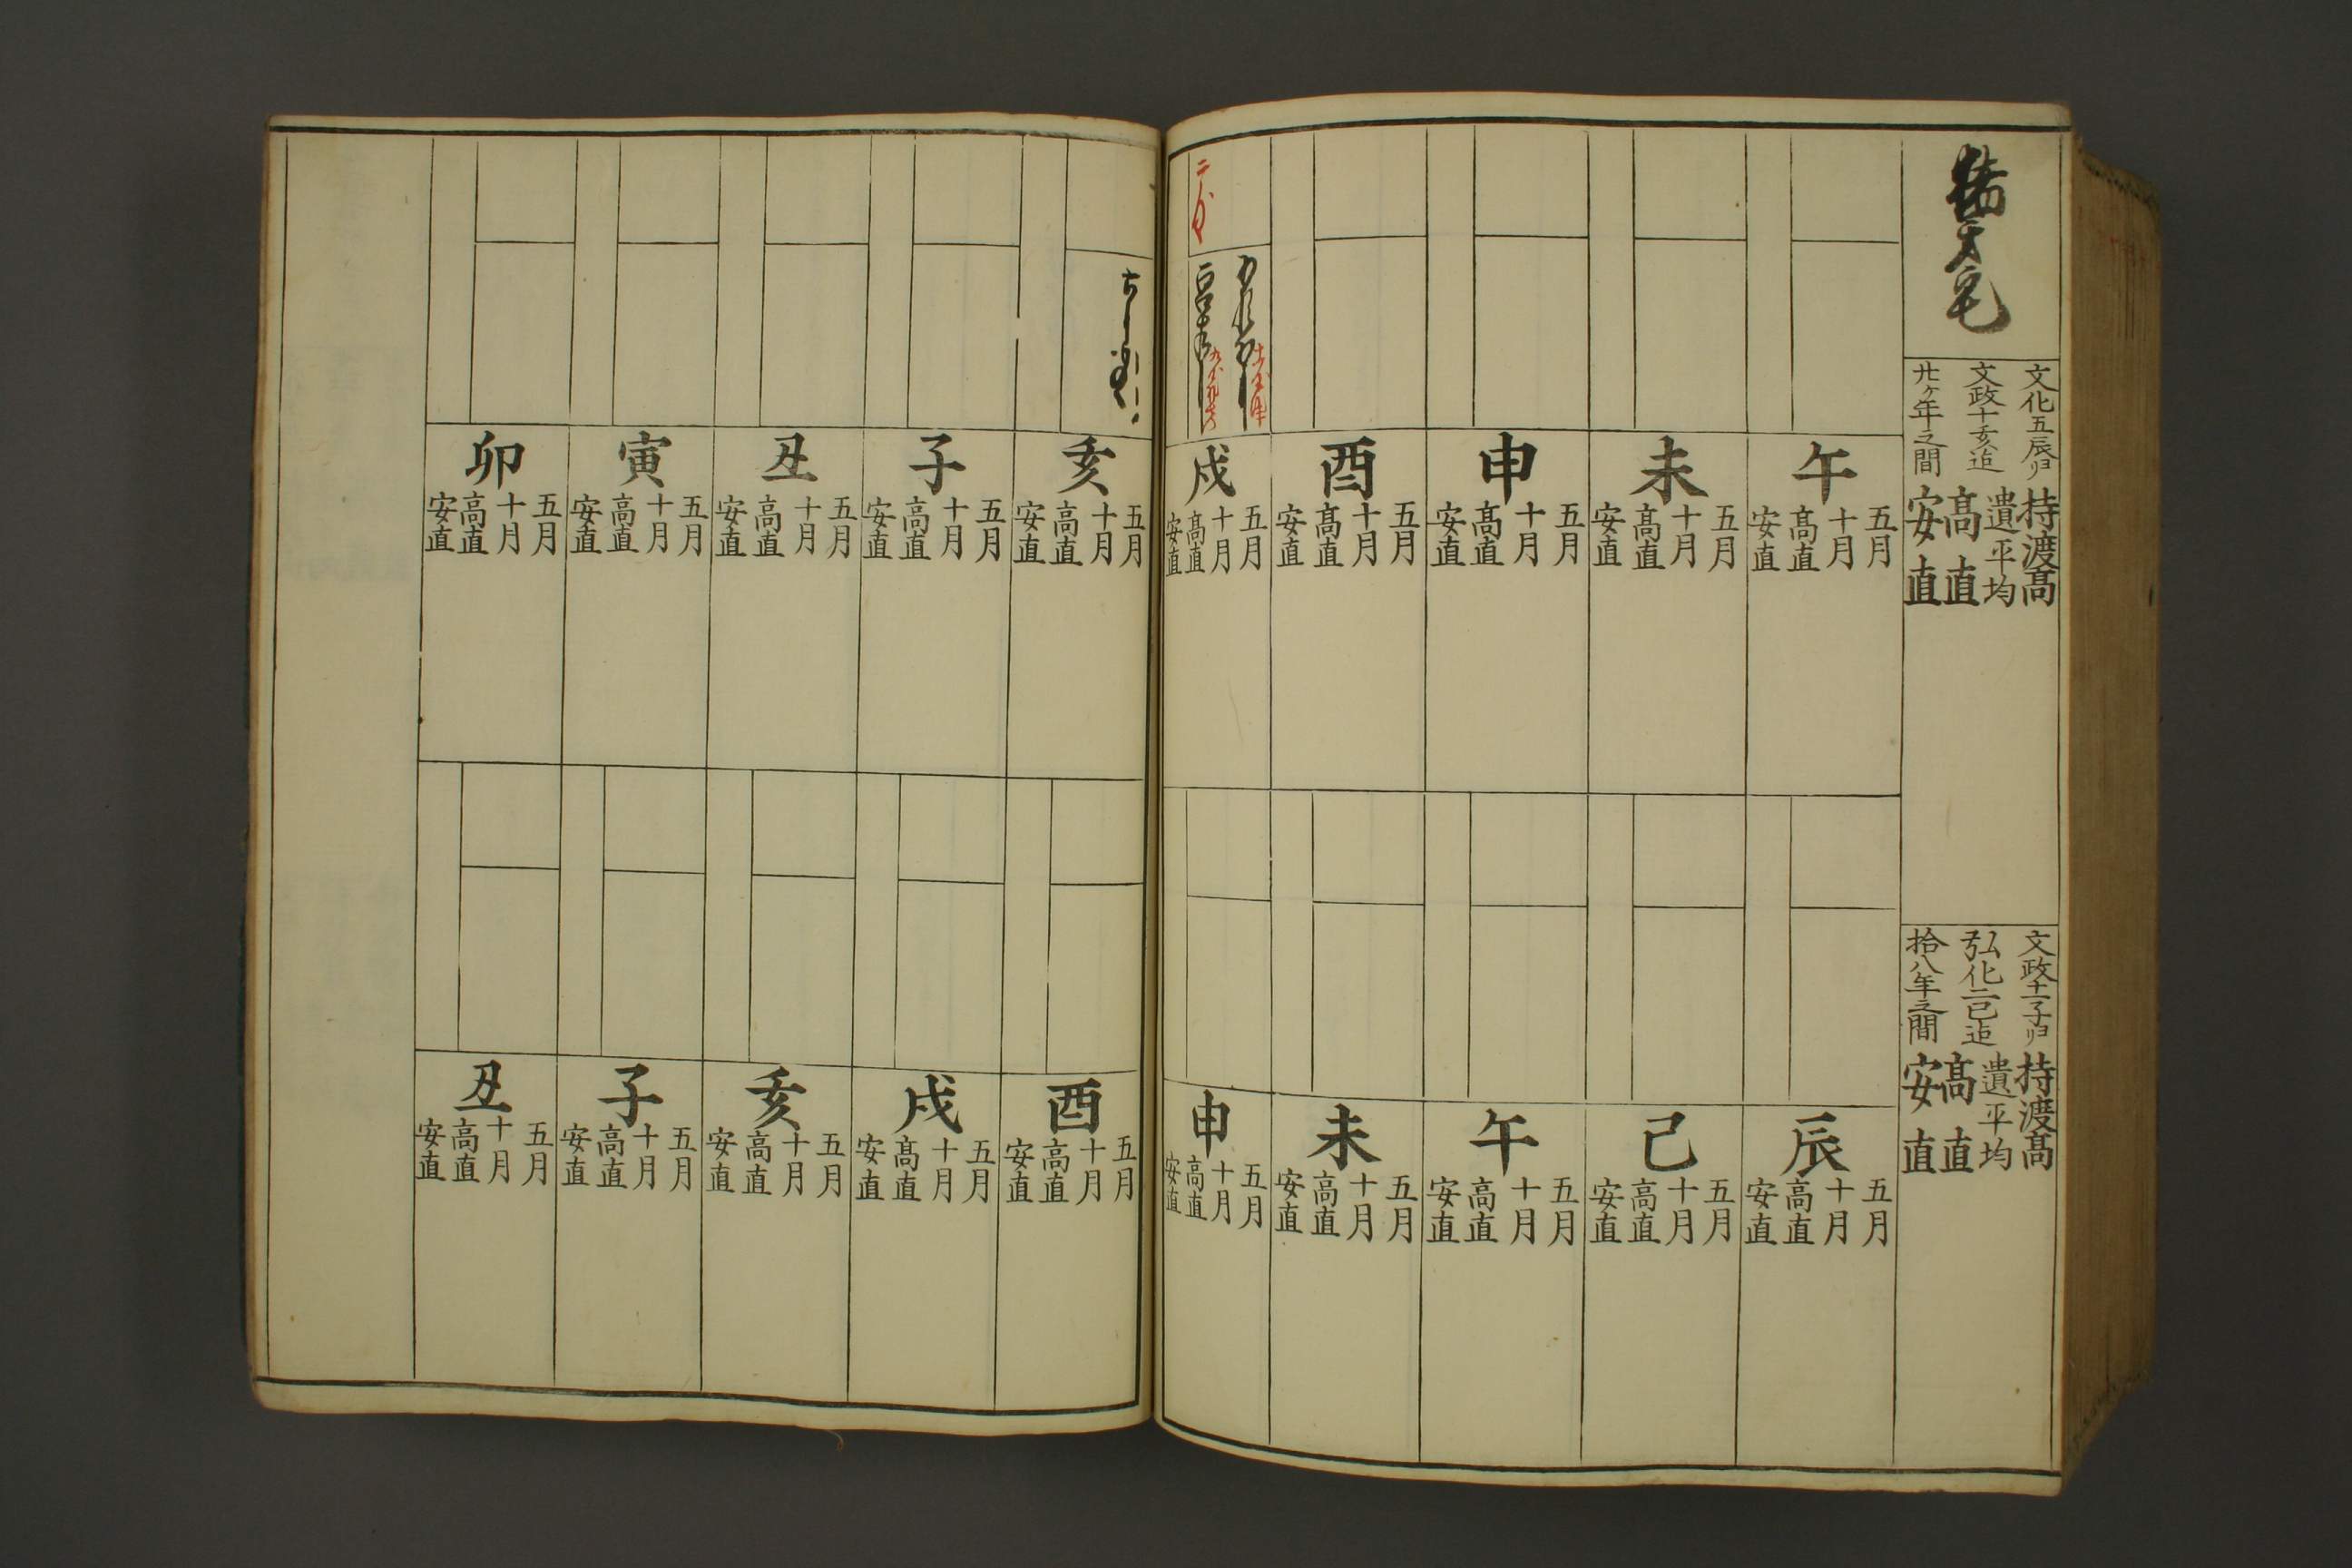 文化五辰ゟ
文政十亥迄
廿ケ年之間
持渡高
遣平均
高直
安直
文政十一子ゟ
弘化二巳迄
拾八年之間
持渡高
遣平均
高直
安直
午
五月
十月
高直
安直
未
五月
十月
高直
安直
申
五月
十月
高直
安直
酉
五月
十月
高直
安直
戌
五月
十月
高直
安直
辰
五月
十月
高直
安直
巳
五月
十月
高直
安直
午
五月
十月
高直
安直
未
五月
十月
高直
安直
申
五月
十月
高直
安直
亥
五月
十月
高直
安直
子
五月
十月
高直
安直
丑
五月
十月
高直
安直
寅
五月
十月
高直
安直
卯
五月
十月
高直
安直
酉
五月
十月
高直
安直
戌
五月
十月
高直
安直
亥
五月
十月
高直
安直
子
五月
十月
高直
安直
丑
五月
十月
高直
安直